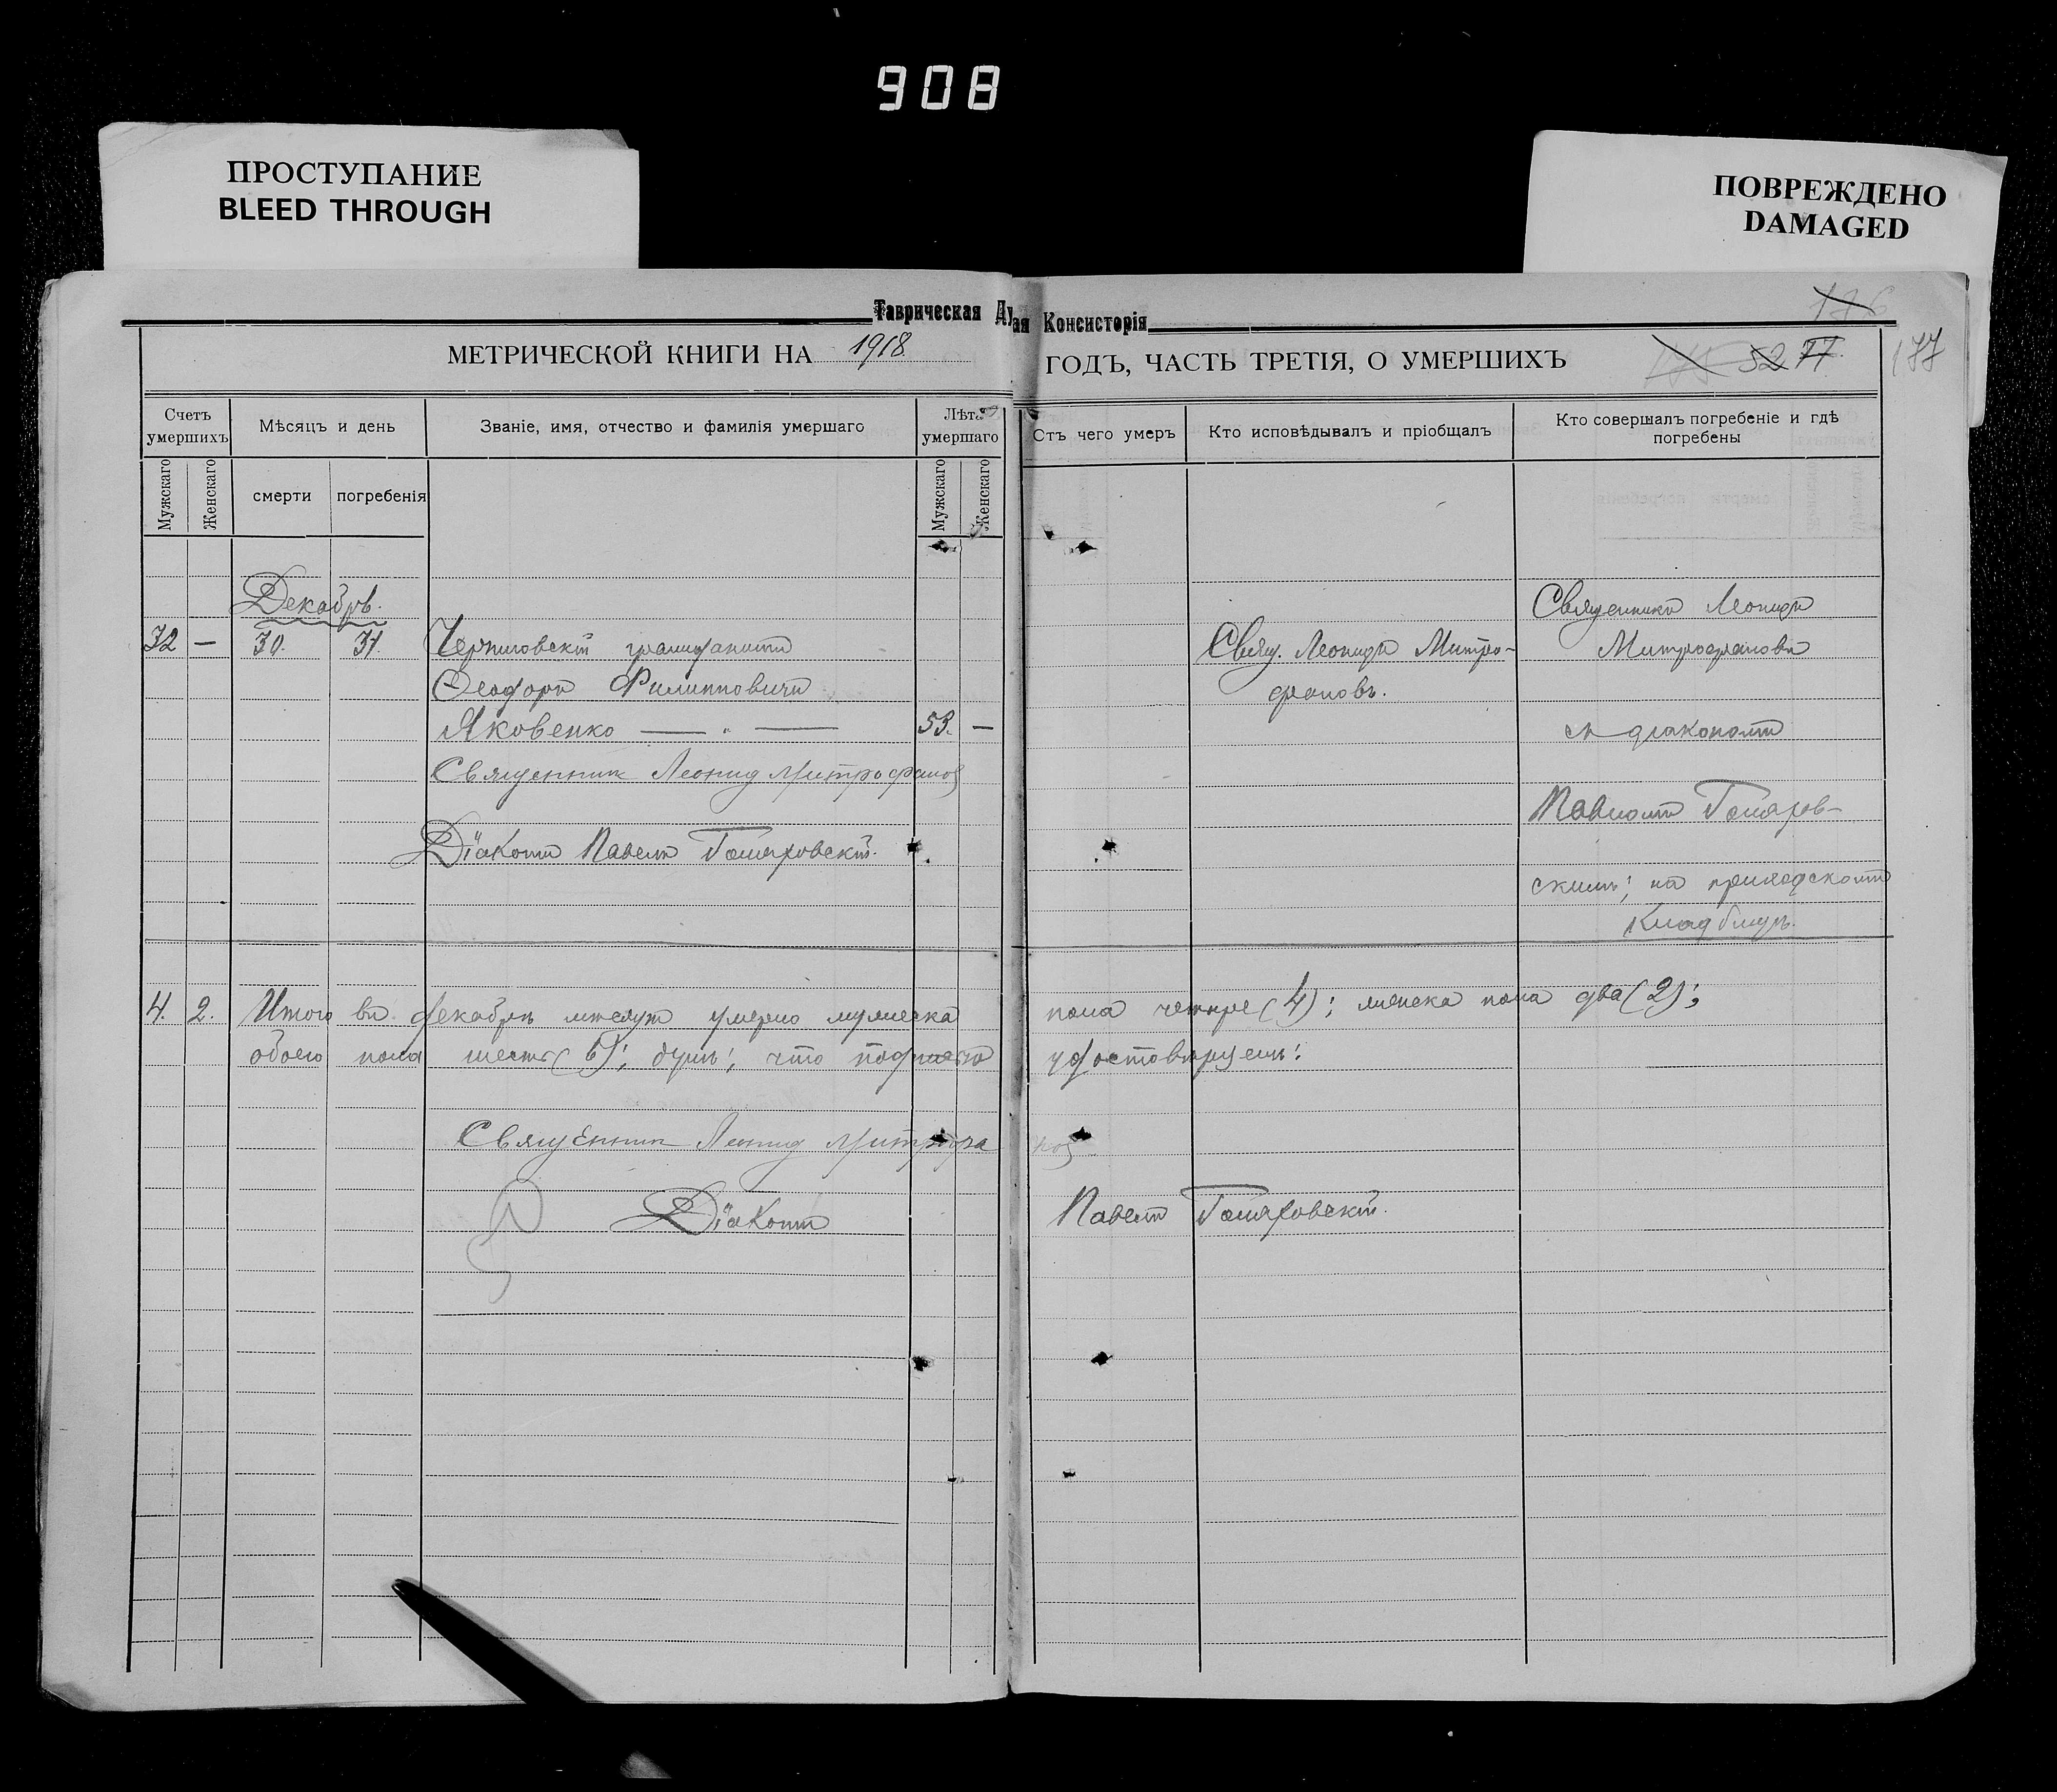 908
ПРОСТУПАНИЕ
BLEED THROUGH
ПОВРЕЖДЕНО
DAMAGED
Таврическая Ду
ая Консисторія
176
МЕТРИЧЕСКОЙ КНИГИ НА 1918
ГОДЪ, ЧАСТЬ ТРЕТІЯ, О УМЕРШИХЪ
52 77.
177
Счетъ умершихъ
Мѣсяцъ и день
Званіе, имя, отчество и фамилія умершаго
Лѣта умершаго
Отъ чего умеръ
Кто исповѣдывалъ и пріобщалъ
Кто совершалъ погребеніе и гдѣ
погребены
Мужскаго
Женскаго
смерти
погребенія
Мужскаго
Женскаго
Декабрь.
32 — 30. 31. Черниговскій гражданинъ
Ѳеодоръ Филипповичъ
Яковенко — " — 53. —
Священник Леонид Митрофанов
Діаконъ Павелъ Гошаровскій.
Свящ. Леонидъ Митро-
фановъ.
Священникъ Леонидъ
Митрофановъ
съ діакономъ
Павломъ Гошаров-
скимъ; на приходскомъ
кладбищѣ.
4. 2. Итого въ декабрѣ мѣсяцѣ умерло мужеска
пола четыре (4); женска пола два (2);
обоего пола шесть (6); душъ; что подписью
удостовѣряемъ:
Священник Леонид Митрофа
нов
Діаконъ
Павелъ Гошаровскій.